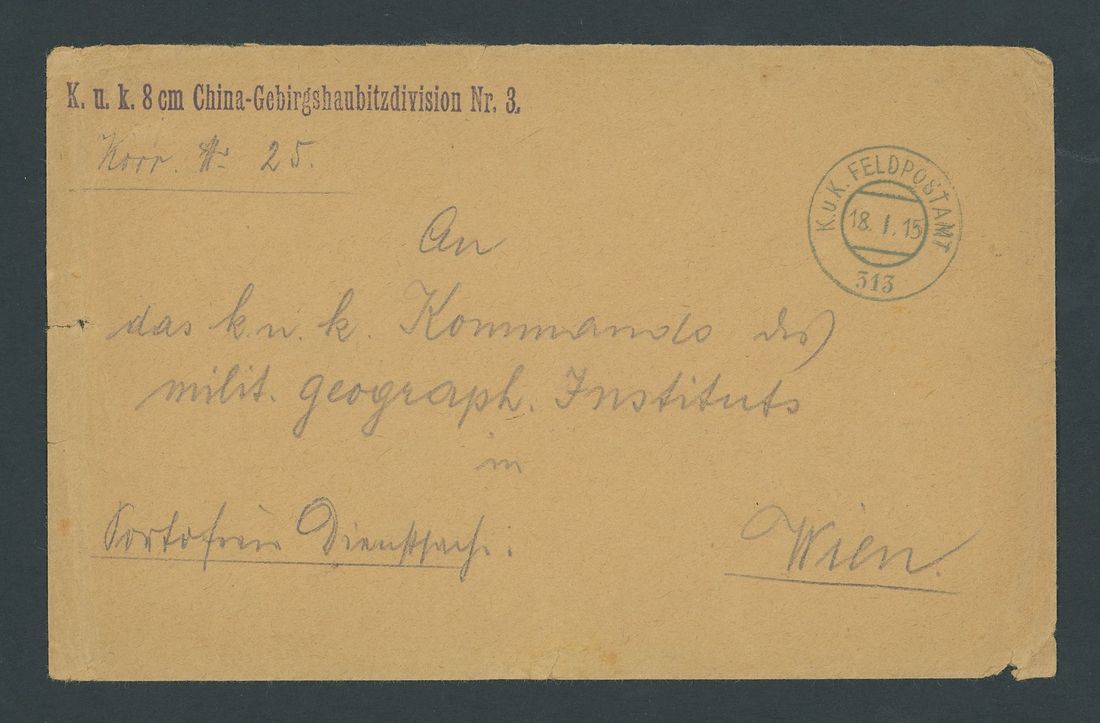 K. u. k. 8 cm China-Gebirgshaubitzdivision Nr. 3.
Korr. Nr 25.
K.u.K. FELDPOSTAMT
18. I. 15
313
An
das k. u. k. Kommando des
milit. geograph. Instituts
in
Portofreie Dienstsache.
Wien.